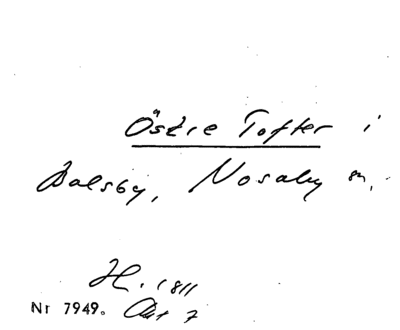 Östre Tofter i
Balsby, Nosaby sn.
H. 1811
Nr 7949. Akt 7